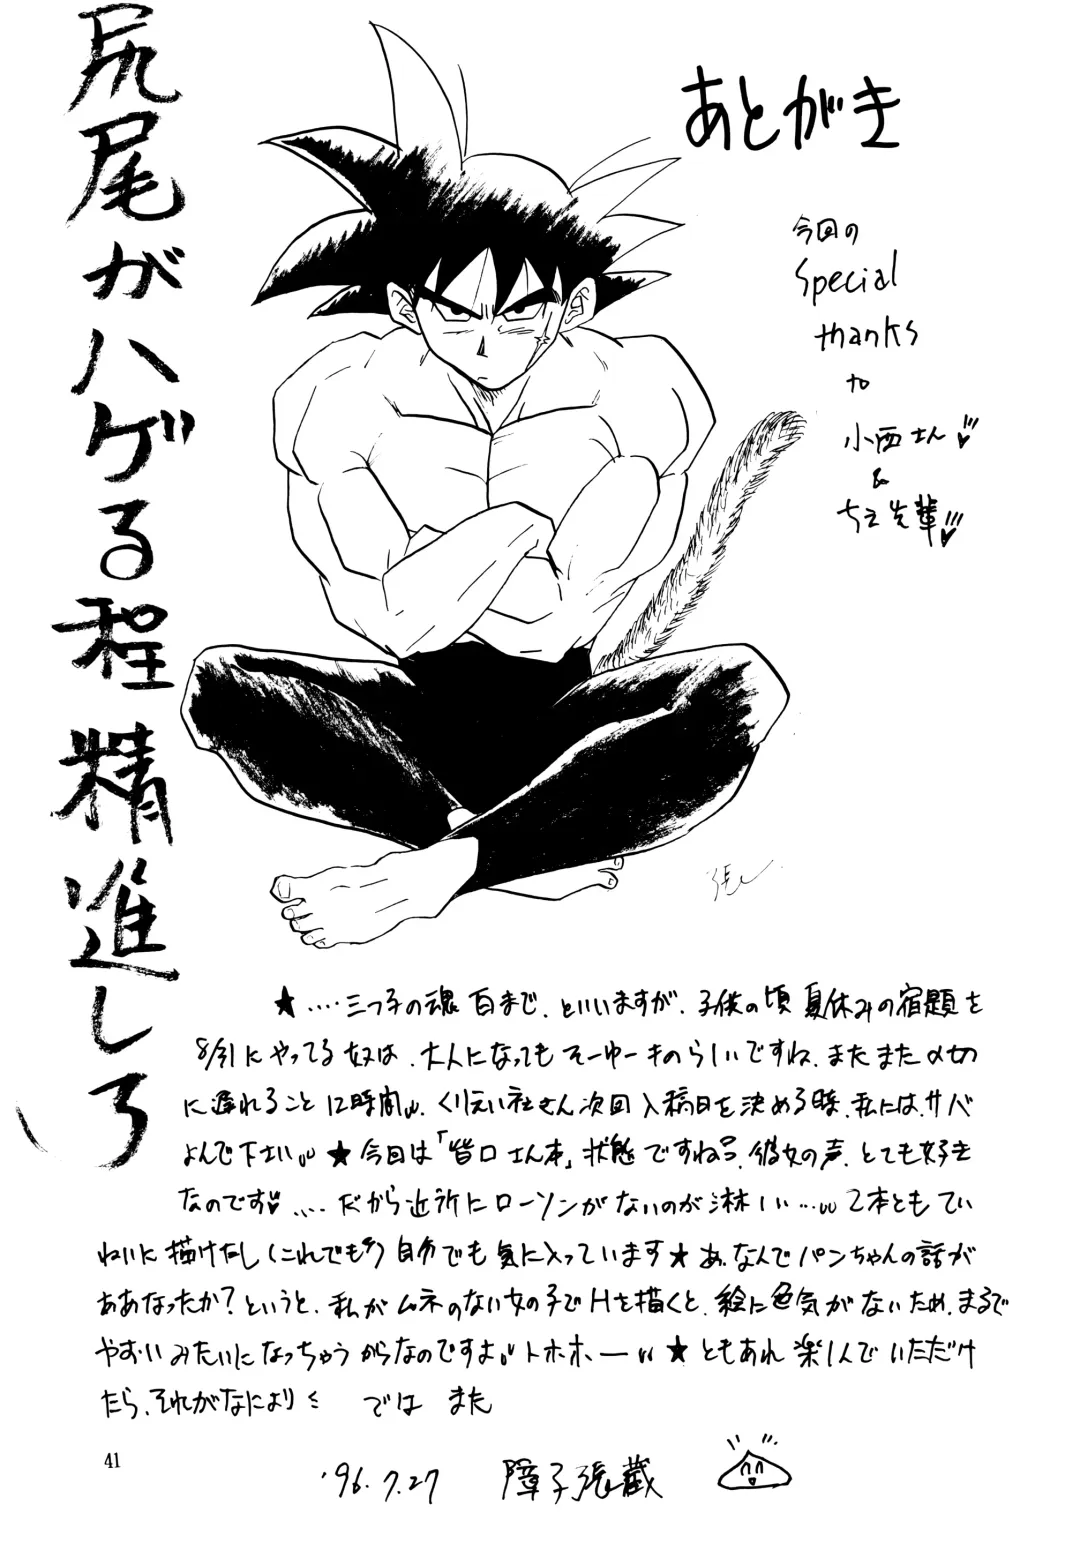 あとがき
尻尾がハゲる程精進しろ
今回の
Special
thanks
to
小西さん
&
ちえ先輩
★‥‥三つ子の魂百まで、といいますが、子供の頃夏休みの宿題を
8/31にやってる奴は、大人になってもそーゆーものらしいですね、またまた〆切
に遅れること12時間。くりえい社さん次回入稿日を決める時、私には、サバ
よんで下さい。★今回は「皆口さん本」状態ですね。彼女の声、とても好き
なのです‥‥だから近所にローソンがないのが淋しい‥‥2本ともてい
ねいに描けたし(これでも)自分でも気に入っています★あ、なんでパンちゃんの話が
ああなったか?というと、私がムネのない女の子でHを描くと、絵に色気がないため、まるで
やおいみたいになっちゃうからなのですよ。トホホー ★ともあれ楽しんでいただけ
たら、それがなにより では また
41
'96.7.27 障子張蔵